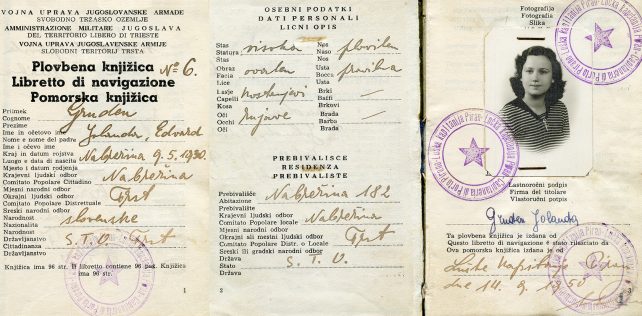 VOJNA UPRAVA JUGOSLOVANSKE ARMADE
SVOBODNO TRŽASKO OZEMLJE
AMMINISTRAZIONE MILITARE JUGOSLAVA
DEL TERRITORIO LIBERO DI TRIESTE
VOJNA UPRAVA JUGOSLAVENSKE ARMIJE
SLOBODNI TERITORIJ TRSTA
Plovbena knjižica
Libretto di navigazione № 6.
Pomorska knjižica
Priimek
Cognome Gruden
Prezime
Ime in očetovo ime
Nome e nome del padre Jolanda, Edvard
Ime i očevo ime
Kraj in datum rojstva
Luogo e data di nascita Nabrežina 9.5.1930.
Mjesto i datum rodjenja
Krajevni ljudski odbor
Comitato Popolare Cittadino Nabrežina
Mjesni narodni odbor
Okrajni ljudski odbor
Comitato Popolare Distrettuale Trst
Sreski narodni odbor
Narodnost
Nazionalità slovenska
Narodnost
Državljanstvo
Cittadinanza S. T. O. Trst
Državljanstvo
Knjižica ima 96 str. Il libretto contiene 96 pag. Knjižica
ima 96 str.
1
OSEBNI PODATKI
DATI PERSONALI
LICNI OPIS
Stas
Statura visoka
Stas
Obraz
Facia ovalen
Lice
Lasje
Capelli kostanjevi
Kosa
Oči
Occhi rujave
Oči
Nos
Naso
Nos
Usta
Bocca pravilna
Usta
Brki
Baffi —
Brkovi
Brada
Barba —
Brada
PREBIVALISCE
RESIDENZA
PREBIVALISTE
Prebivališče
Abitazione Nabrežina 182
Prebivalište
Krajevni ljudski odbor
Comitato Popolare Locale Nabrežina
Mjesni narodni odbor
Okrajni ali mestni ljudski odbor
Comitato Popolare Distr. o Locale Trst
Sreski ili gradski narodni odbor
Država
Stato S. T. O.
Država
2
Fotografija
Fotografia
Slika
Lastnoročni podpis
Firma del titolare
Vlastoručni potpis
Gruden Jolanda
Ta plovbena knjižica je izdana od
Questo libretto di navigazione è stato rilasciato da
Ova pomorska knjižica izdana je od
Luške Kapitanije Piran
dne 14.9.1950